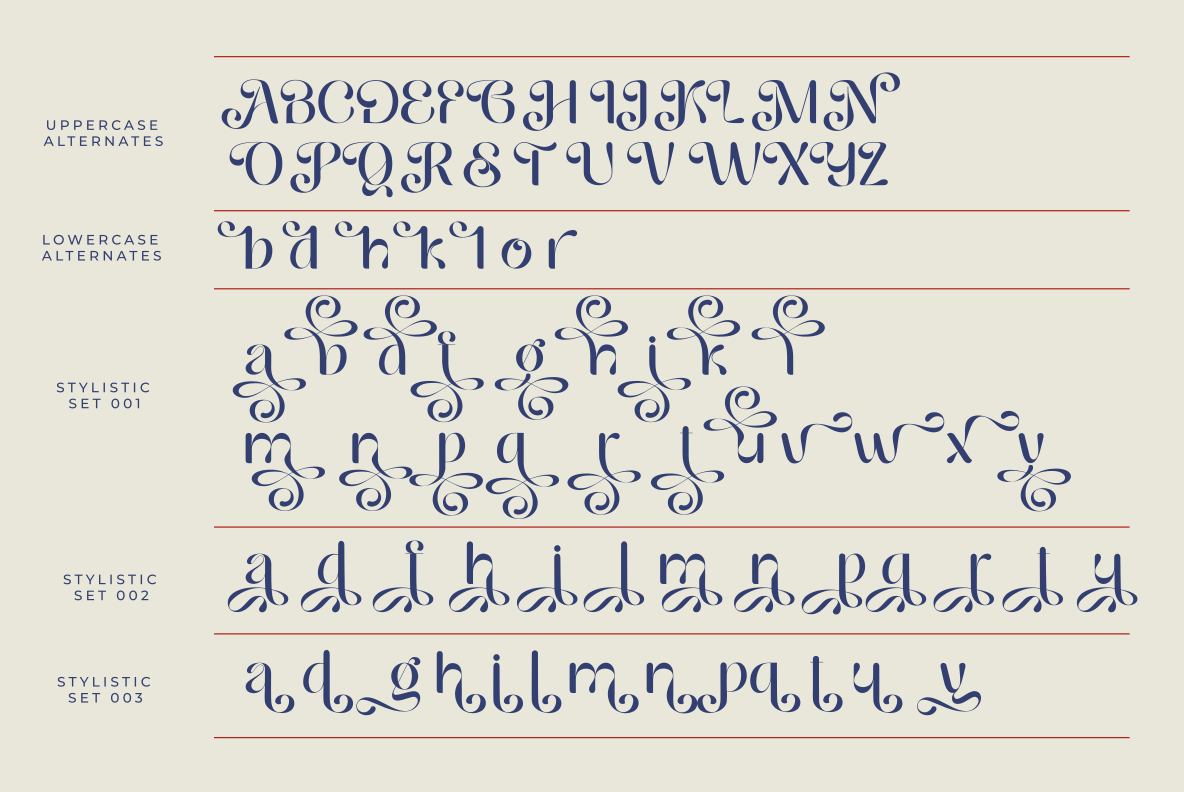 UPPERCASE
ALTERNATES
ABCDEFGHIJKLMN
OPQRSTUVWXYZ
LOWERCASE
ALTERNATES
b d h k l o r
STYLISTIC
SET 001
a b d f g h i k l
m n p q r t u v w x y
STYLISTIC
SET 002
a d f h i l m n p q r t y
STYLISTIC
SET 003
a d g h i l m n p q t u y